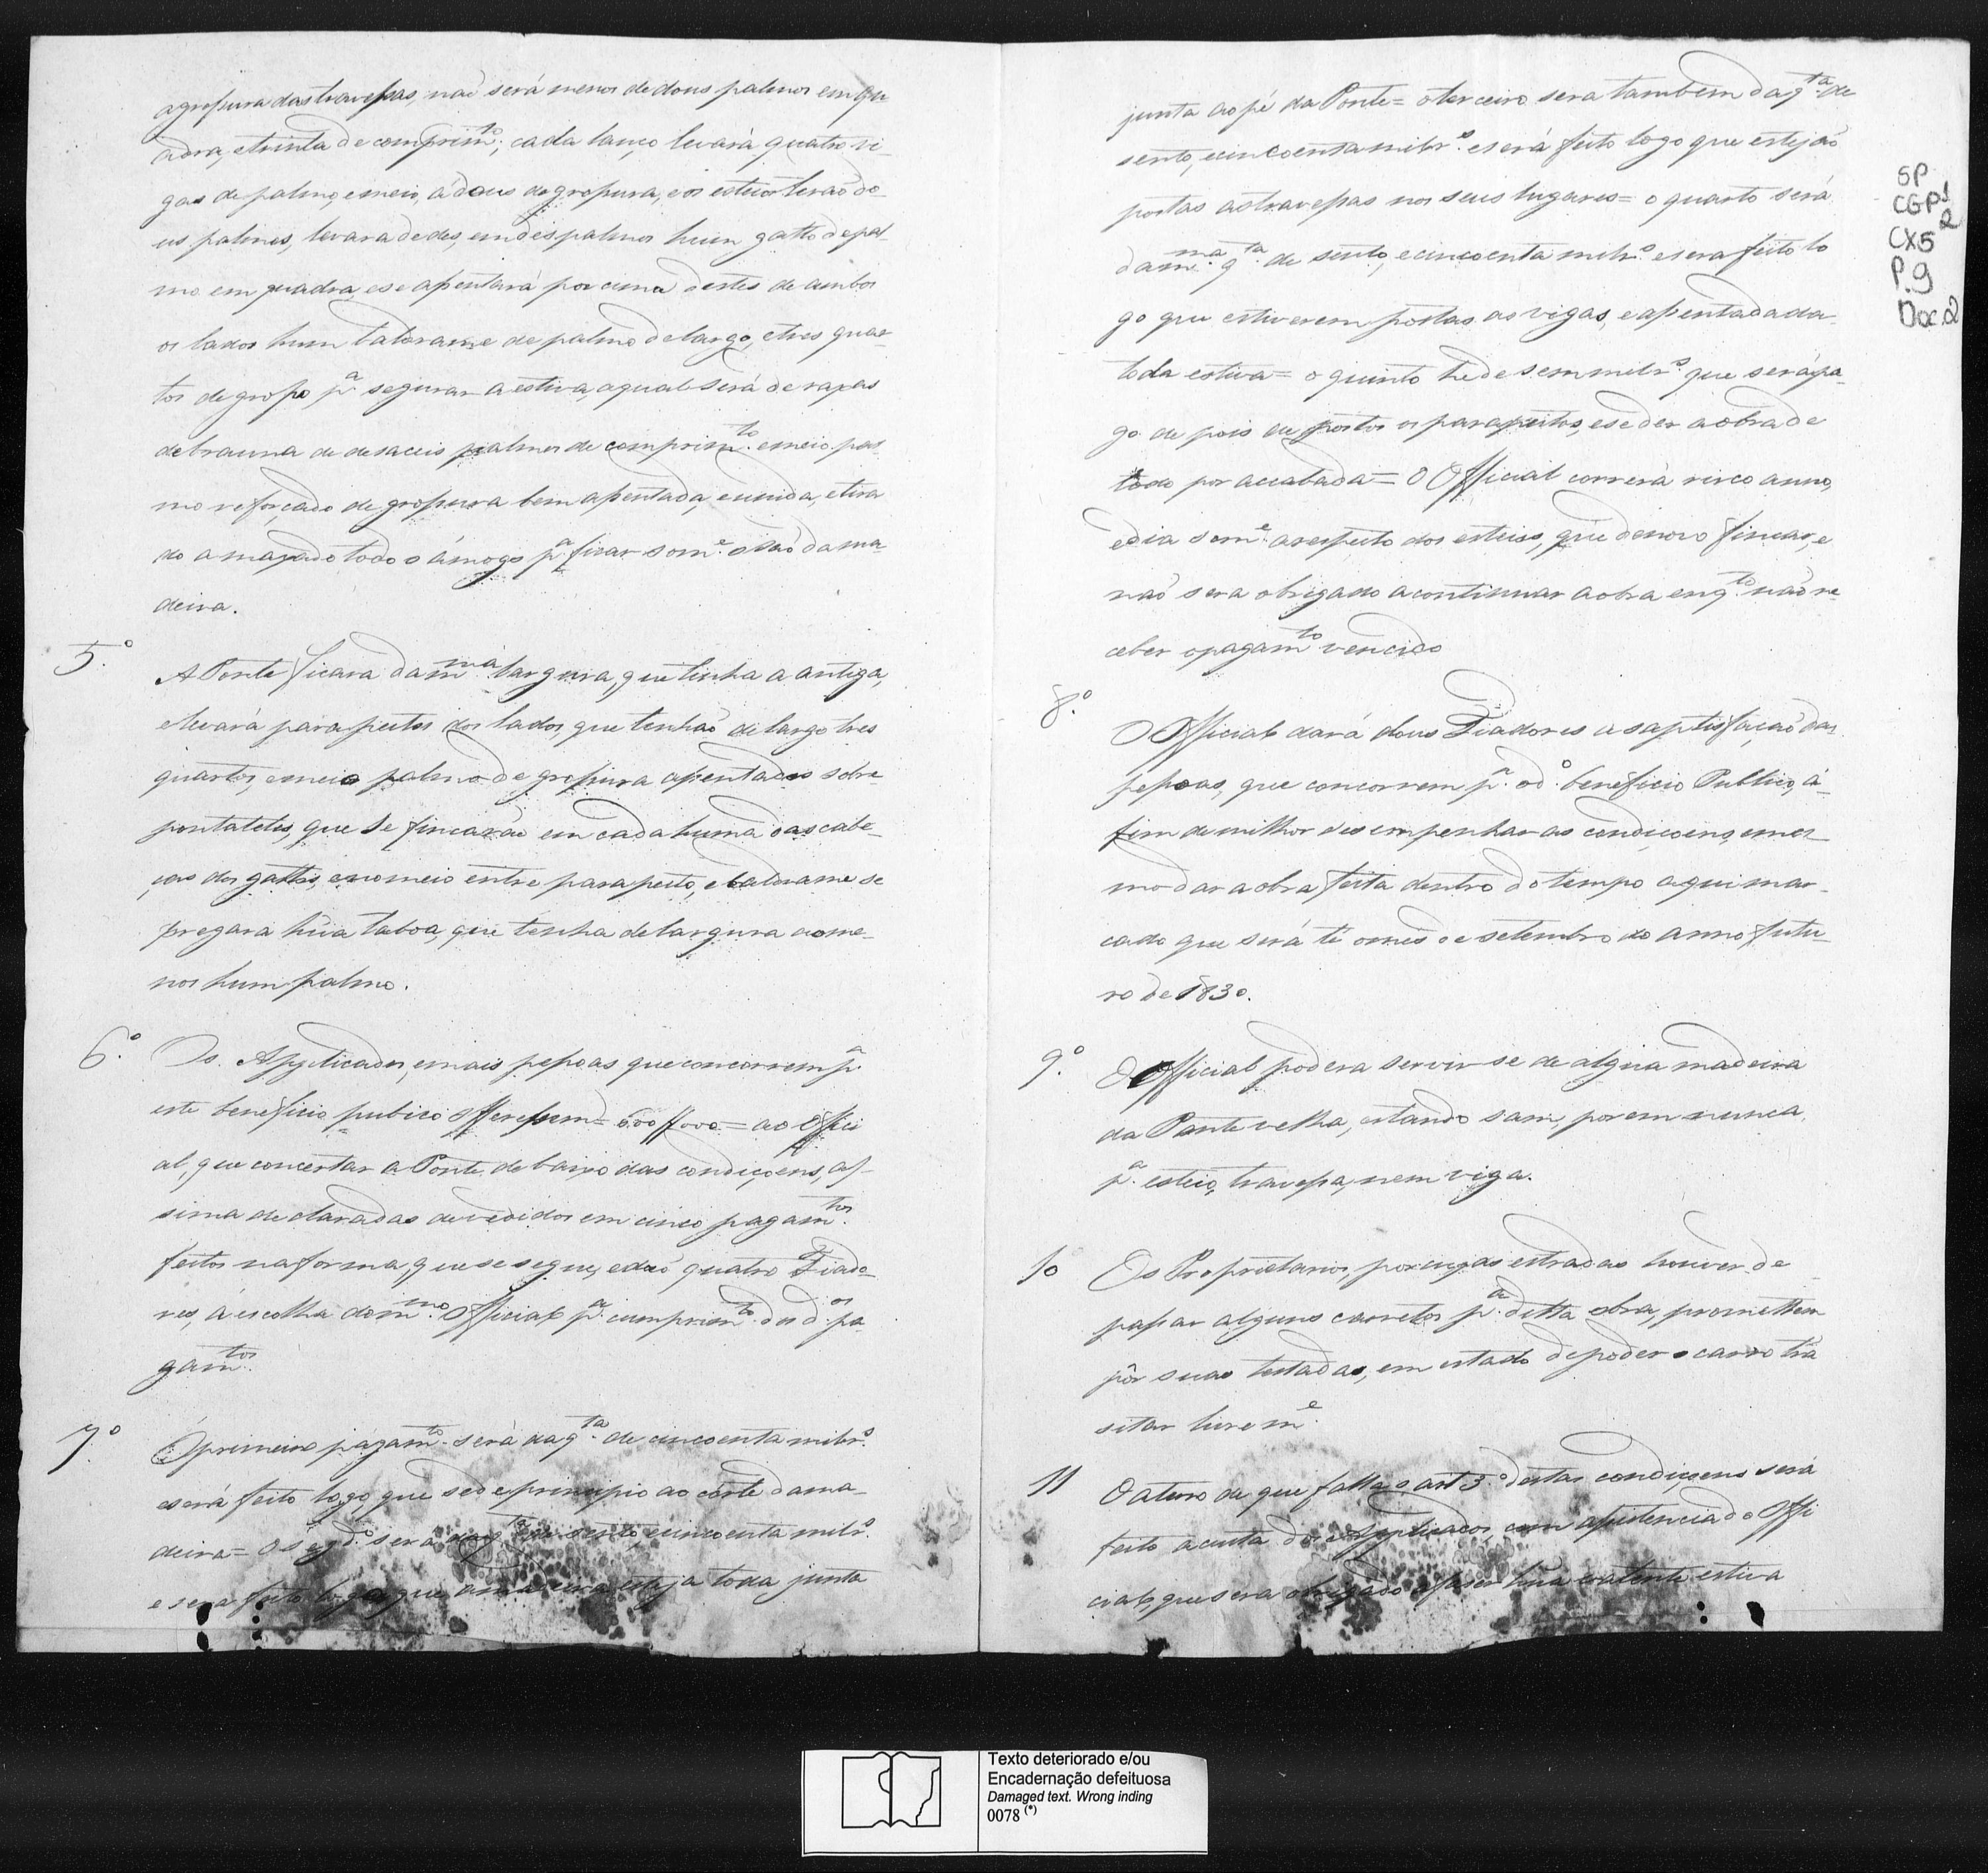 a grossura das travessas, naõ será menos de dous palmos em qu
adra, e trinta de comprim.to; cada lanço levará quatro vi-
gas de palmo, e meio, á dous de grossura, e os esteios teraõ do-
us palmos, levara de des, em des palmos hum gatto de pal-
mo em quadra, e se assentará por cima destes de ambos
os lados hum taborame de palmo de largo, e tres quar-
tos de grosso p.a segurar a estiva, a qual será de raxas
de brauna de desaceis palmos de comprim.to e meio pal
mo reforçado de grossura bem assentada, e unida, e tira
do a maxado todo o âmogo p.a ficar som.e o saõ da ma-
deira.
5.º
A Ponte ficara da m.ma largura, que tinha a antiga,
e levará parapeitos dos lados, que tenhaõ de largo tres
quartos, e meio palmo de grossura assentados sobre
pontaletes, que se fincaraõ em cada huma das cabe-
ças dos gattos, e no meio entre parapeito, e taborame se
pregara hũa taboa, que tenha de largura ao me-
nos hum palmo.
6.º
Os Applicados, e mais pessoas que concorrem p.a
este beneficio publico offeressem = 600ƒƒ000 = ao Offici
al, que concertar a Ponte debaixo das condiçoens, as-
sima declaradas devedidos em cinco pagam.tos
feitos na forma, que se segue, e daõ quatro Fiado-
res, á escolha do m.mo Official p.a cumprim.to dos d.os pa-
gam.tos
7.º
O primeiro pagam.to será da q.ta de cincoenta milr.s
e será feito logo, que se de principio ao córte da ma-
deira = O seg.do será da q.ta de sento, e cincoenta milr.s
e sera feito logo que a madeira esteja toda junta
junta ao pé da Ponte = o terceiro sera tambem da q.ta de
sento, e cincoenta milr.s e será feito logo que estejaõ
postas as travessas nos seus lugares = o quarto será
da m.ma q.ta de sento, e cincoenta milr.s e sera feito lo
go que estiverem postas as vigas, e assentada a
toda estiva = o quinto he de sem milr.s que será pa-
go de pois de postos os parapeitos, e se der a obra de
todo por acabada = O Official correrá risco anno,
e dia som.e a respeito dos esteios, que de novo fincar, e
naõ sera obrigado a continuar a obra enq.to naõ re-
ceber o pagam.to vencido
8.º
O Official dará dous Fiadores a saptisfaçaõ das
pessoas, que concorrem p.a o d.o beneficio Publico, á-
fim de milhor desempenhar as condiçoens, e mes-
mo dar a obra feita dentro do tempo aqui mar-
cado que será té o mes de setembro do anno futu-
ro de 1830.
9.º
O Official podera servir-se de algũa madeira
da Ponte velha, estando sam, porem nunca
p.a esteio, travessa, nem viga.
10
Os Proprietarios, por cujas estradas houver de
passar alguns carretos p.a ditta obra, promettem
pôr suas testadas, em estado de poder o carro trã
sitar livrem.e
11
O aterro de que falla o art 3.º destas condiçoens será
feito a custa dos Applicados, com assistencia do Offi
cial, que sera obrigado a fazer hũa valente estiva
SP
CGP1
2
CX5
P.9
Doc.2
Texto deteriorado e/ou
Encadernação defeituosa
Damaged text. Wrong inding
0078 (*)